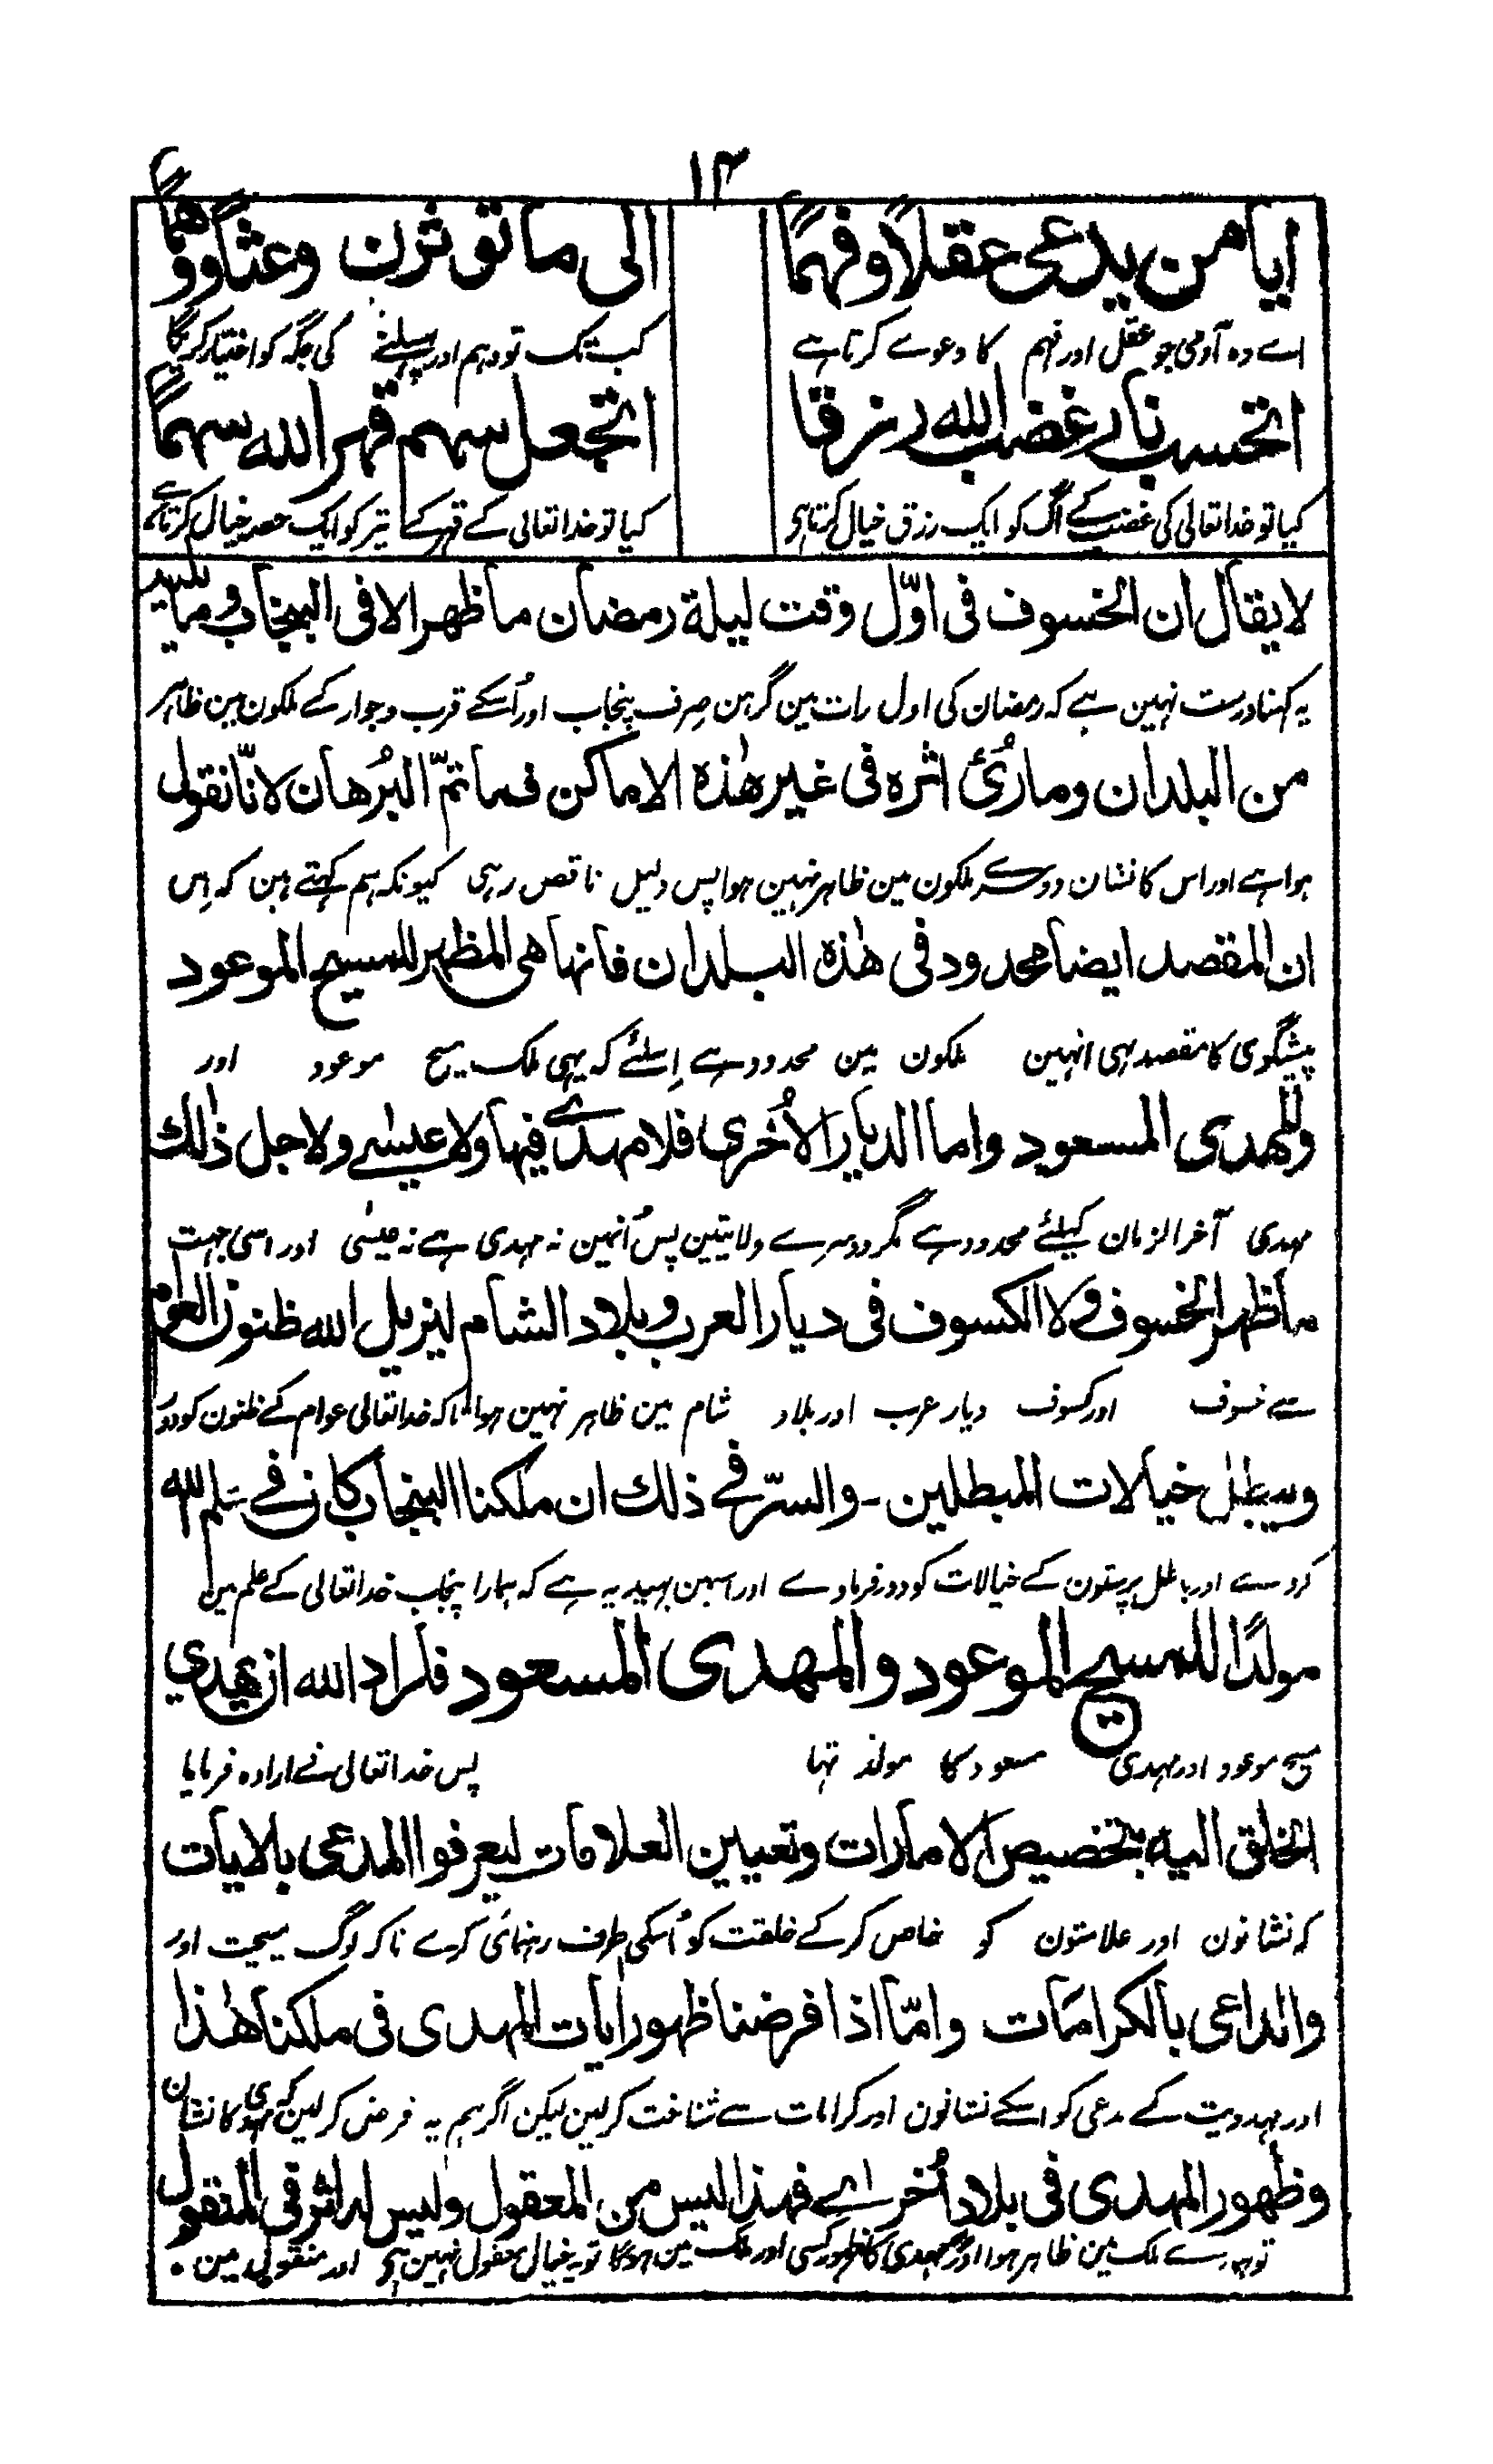 ۱۴
ایا من یدعی عقلاً و فهمًا الی ما تو ثرن وعثًا و وهمًا
اے وہ آدمی جو عقل اور فہم کا دعوے کرتا ہے کب تک تو وہم اور پہسلنے کی جگہ کو اختیار کریگا
اتحسب نار غضب الله رزقا اتجعل سهم قهر الله سهمًا
کیا تو خدا تعالی کی غضب کے آگ کو ایک رزق خیال کرتا ہی کیا تو خدا تعالی کے قہر کے تیر کو ایک حصہ خیال کرتا ہے
لا یقال ان الخسوف فی اوّل وقت لیلة رمضان ما ظهر الا فی البنجاب وما یلیه
یہ کہنا درست نہین ہے کہ رمضان کی اول رات مین گرہن صرف پنجاب اور اُسکے قرب و جوار کے ملکون مین ظاہر
من البلدان وما رُئ اثره فی غیر هٰذه الاماکن فما تمّ البُرهان لانّا نقول
ہوا ہے اور اس کا نشان دوسرے ملکون مین ظاہر نہین ہوا پس دلیل ناقص رہی کیونکہ ہم کہتے ہین کہ اِس
ان المقصد ایضا محدود فی هٰذه البلدان فانها هی المظهر للمسیح الموعود
پیشگوی کا مقصد بہی انہین ملکون مین محدود ہے اِسلئے کہ یہی ملک مسیح موعود اور
وللمهدی المسعود واما الدیار الاُخریٰ فلا مهدی فیها ولا عیسٰے ولاجل ذٰلك
مہدی آخر الزمان کیلئے محدود ہے مگر دوسرے ولایتین پس اُنہین نہ مہدی ہے نہ عیسٰی اور اسی جہت
ما ظهر الخسوف ولا الکسوف فی دیار العرب وبلاد الشام لیزیل الله ظنون العوام
سے خسوف اور کسوف دیار عرب اور بلاد شام مین ظاہر نہین ہوا تاکہ خدا تعالی عوام کے ظنون کو دور
ویبطل خیالات المبطلین ۔ والسرّ فے ذلك ان ملکنا البنجاب کان فے علم الله
کردے اور باطل پرستون کے خیالات کو دور فرماوے اور اسمین بہید یہ ہے کہ ہمارا پنجاب خدا تعالی کے علم مین
مولدًا للمسیح الموعود والمهدی المسعود فاراد الله ان یهدی
مسیح موعود اور مہدی مسعود کا مولد تہا پس خدا تعالی نے ارادہ فرمایا
الخلق الیه بتخصیص الامارات وتعیین العلامات لیعرفوا المدعی بالایات
کہ نشانون اور علامتون کو خاص کر کے خلقت کو اُسکی طرف رہنمائی کرے تاکہ لوگ مسیحیت اور
والداعی بالکرامات وامّا اذا فرضنا ظهور ایات المهدی فی ملکنا هٰذا
اور مہدویت کے مدعی کو اسکے نشانون اور کرامات سے شناخت کرلین لیکن اگر ہم یہ فرض کرلین کہ مہدی کا نشان
وظهور المهدی فی بلاد اُخرٰے فهذا لیس من المعقول ولیس له اثر فی المنقول
تو ہمارے ملک مین ظاہر ہوا اور مہدی کا ظہور کسی اور ملک مین ہوگا تو یہ خیال معقول نہین ہی اور منقول مین ۔